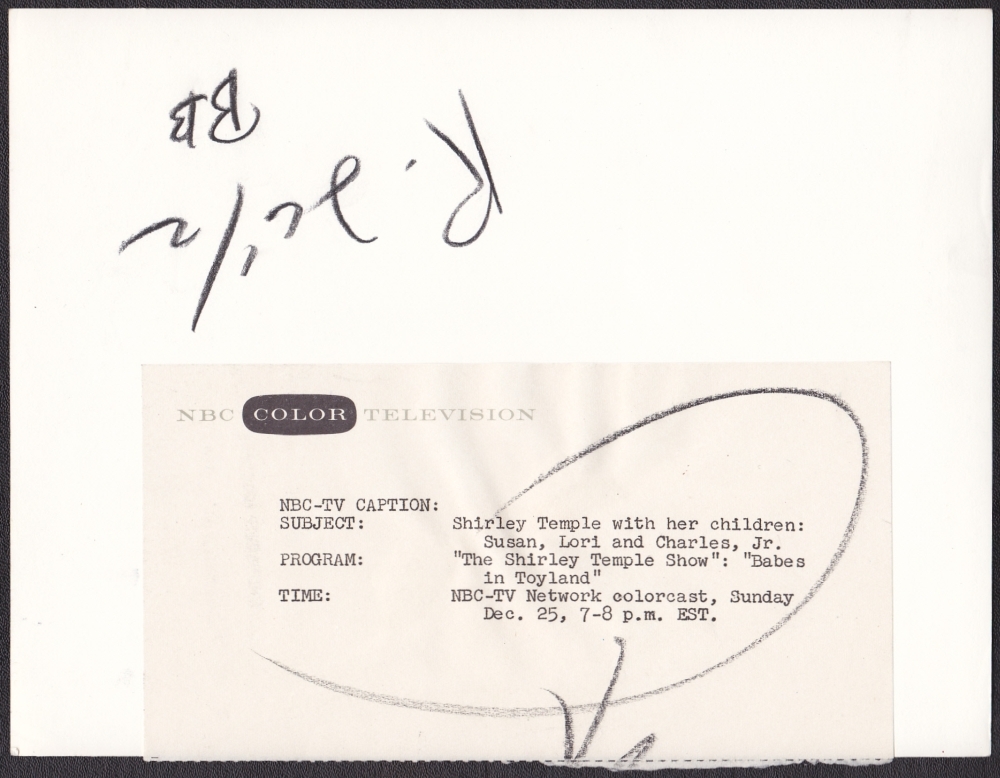 NBC COLOR TELEVISION
NBC-TV CAPTION:
SUBJECT: Shirley Temple with her children:
Susan, Lori and Charles, Jr.
PROGRAM: "The Shirley Temple Show": "Babes
in Toyland"
TIME: NBC-TV Network colorcast, Sunday
Dec. 25, 7-8 p.m. EST.